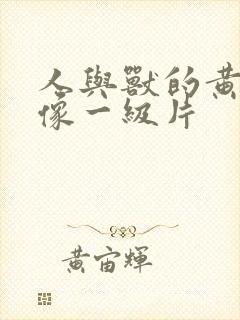 人與獸的黃
像一級片
黃宙輝